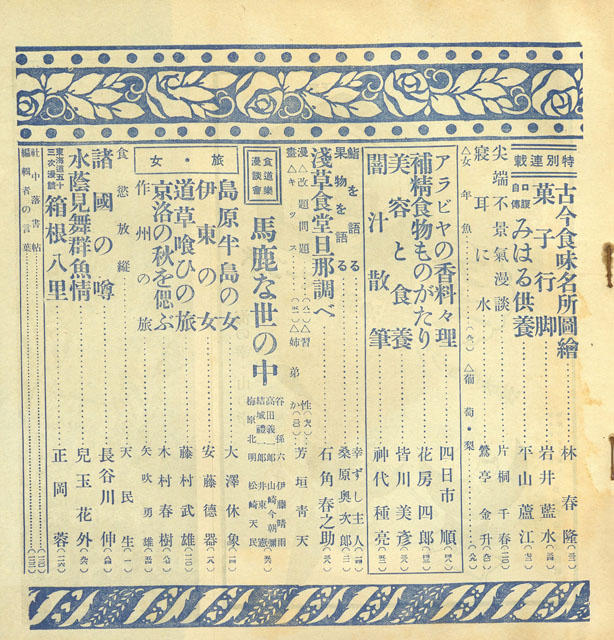 特別連載
古今食味名所圖繪 林春隆
菓子行脚 岩井藍水
口腹自傳 みはる供養 平山蘆江
尖端不景氣漫談 片桐千春
寢耳に水 鶯亭金升
△女年魚 △葡萄・梨
アラビヤの香料々理 四日市順
補精食物ものがたり 花房四郎
美容と食養 皆川美彦
闇汁散筆 神代種亮
鮨を語る 幸ずし主人
果物を語る 桑原奥次郎
淺草食堂旦那調べ 石角春之助
漫畫 △改題問題 △習性 芳垣青天
△キッス △姉弟か
食道樂漫談會 馬鹿な世の中
谷孫六 伊藤晴雨
高田義一郎 山崎今朝彌
結城禮一郎 井東憲
梅原北明 松崎天民
旅・女
島原半島の女 大澤休象
伊東の女 安藤德器
道草喰ひの旅 藤村武雄
京洛の秋を偲ぶ 木村春樹
作州の旅 矢吹勇雄
食慾放縱 天民生
諸國の噂 長谷川伸
水蔭見舞群魚情 兒玉花外
東海道五十三次漫談 箱根八里 正岡蓉
社中落書帖
編輯者の言葉